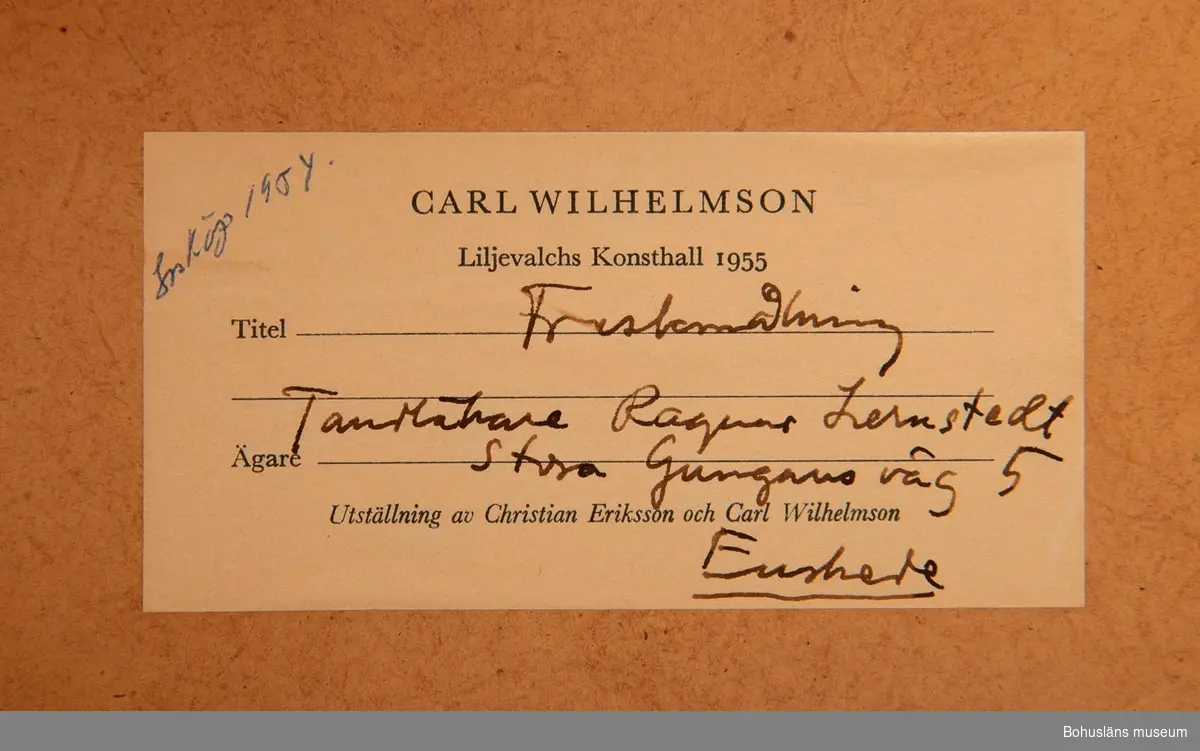 Inköp 1954.
CARL WILHELMSON
Liljevalchs Konsthall 1955
Titel Freskmålning
Tandläkare Ragnar Lernstedt
Ägare Stora Gungans väg 5
Utställning av Christian Eriksson och Carl Wilhelmson
Enskede
Bohusläns museum